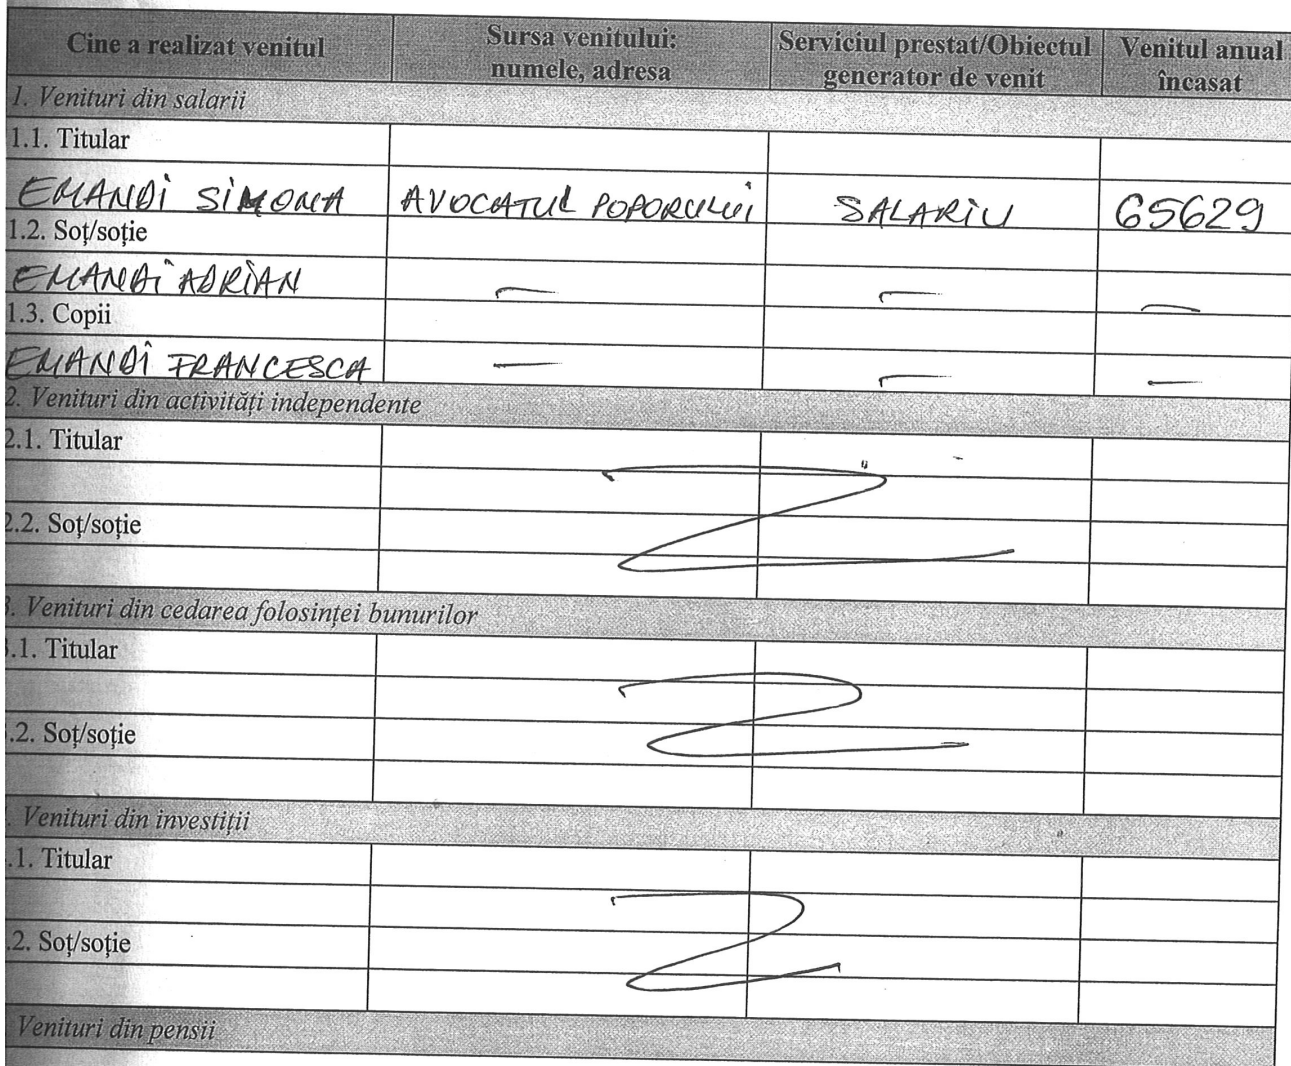 Cine a realizat venitul
Sursa venitului:
numele, adresa
Serviciul prestat/Obiectul
generator de venit
Venitul anual
încasat
1. Venituri din salarii
1.1. Titular
EMANDI SIMONA AVOCATUL POPORULUI SALARIU 65629
1.2. Soț/soție
EMANDI ADRIAN — — —
1.3. Copii
EMANDI FRANCESCA — — —
2. Venituri din activități independente
2.1. Titular
2.2. Soț/soție
. Venituri din cedarea folosinței bunurilor
.1. Titular
.2. Soț/soție
. Venituri din investiții
.1. Titular
.2. Soț/soție
Venituri din pensii